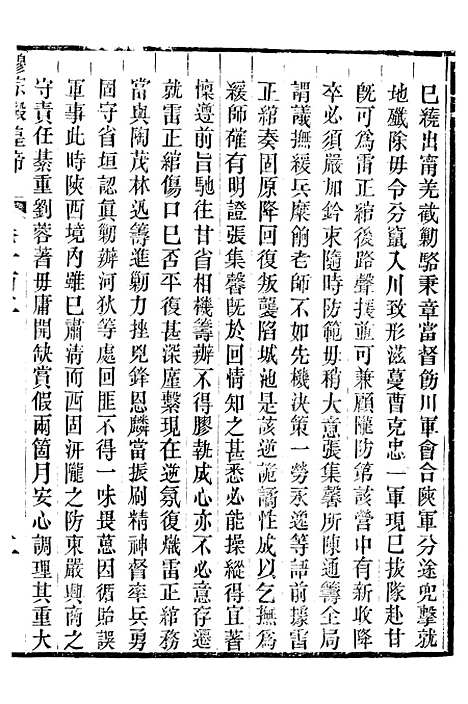 已繞出甯羌截勦駱秉章當督飭川軍會合陝軍分途兜擊就
地殲除毋令分竄入川致形滋蔓曹克忠一軍現已拔隊赴甘
旣可爲雷正綰後路聲援並可兼顧隴防第該營中有新收降
卒必須嚴加鈐束隨時防範毋稍大意張集馨所陳通籌全局
謂議撫緩兵糜餉老師不如先機決策一勞永逸等語前據雷
正綰奏固原降回復叛襲陷城池是該逆詭譎性成以乞撫爲
緩師確有明證張集馨旣於回情知之甚悉必能操縱得宜著
懍遵前旨馳往甘省相機籌辦不得膠執成心亦不必意存遷
就雷正綰傷口已否平復甚深廑繫現在逆氛復熾雷正綰務
當與陶茂林迅籌進勦力挫兇鋒恩麟當振刷精神督率兵勇
固守省垣認眞勦辦河狄等處回匪不得一味畏葸因循貽誤
軍事此時陝西境內雖已肅清而西固汧隴之防東嚴興商之
守責任綦重劉蓉著毋庸開缺賞假兩箇月安心調理其重大
穆宗毅皇帝